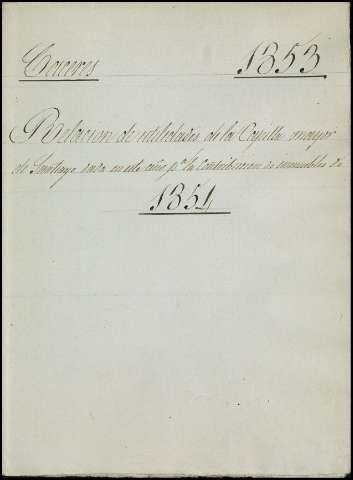 Caceres 1853
Relacion de utilidades de la Capilla mayor
de Santiago dada en este año pª la Contribucion de inmuebles de
1854